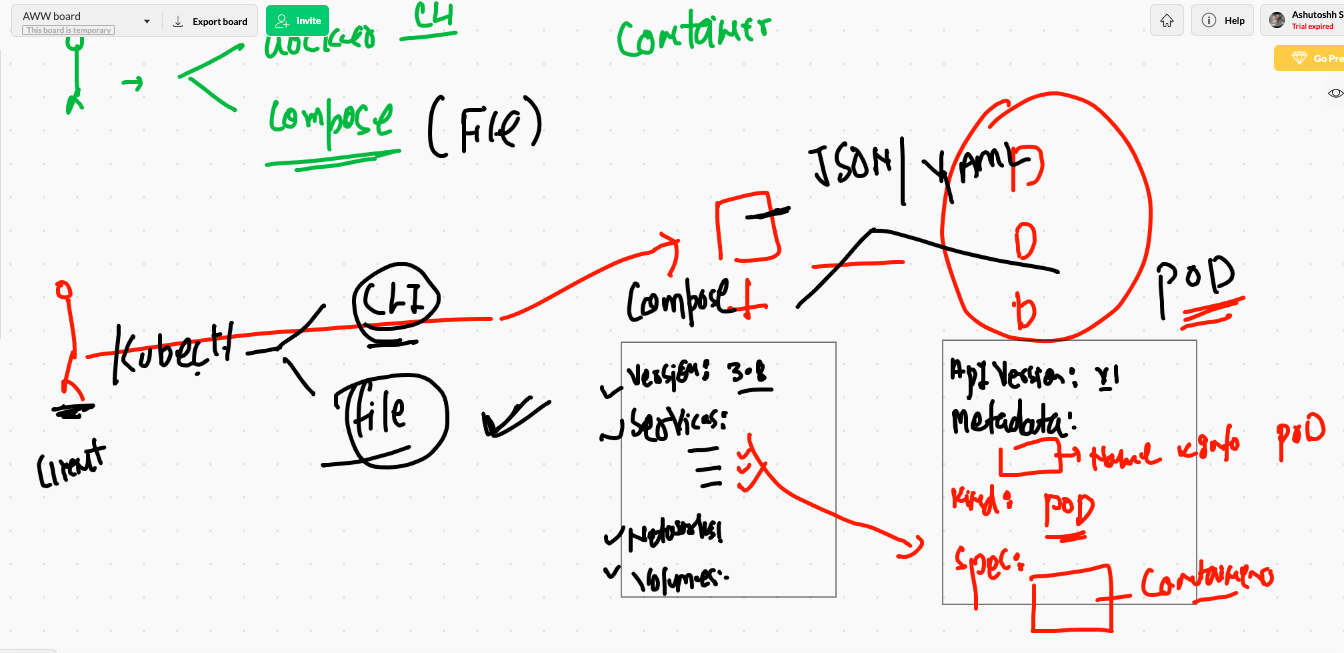 AWW board
This board is temporary
Export board
Invite
Help
Ashutoshh S
Trial expired
Go Pre
docker CLI
Container
compose (File)
JSON/YAML
P
O
D
POD
Client
Kubectl
CLI
File
Compose
Version: 3.8
Services:
Networks:
Volumes:
ApiVersion: v1
Metadata:
Name & info POD
Kind: POD
Spec:
Containers